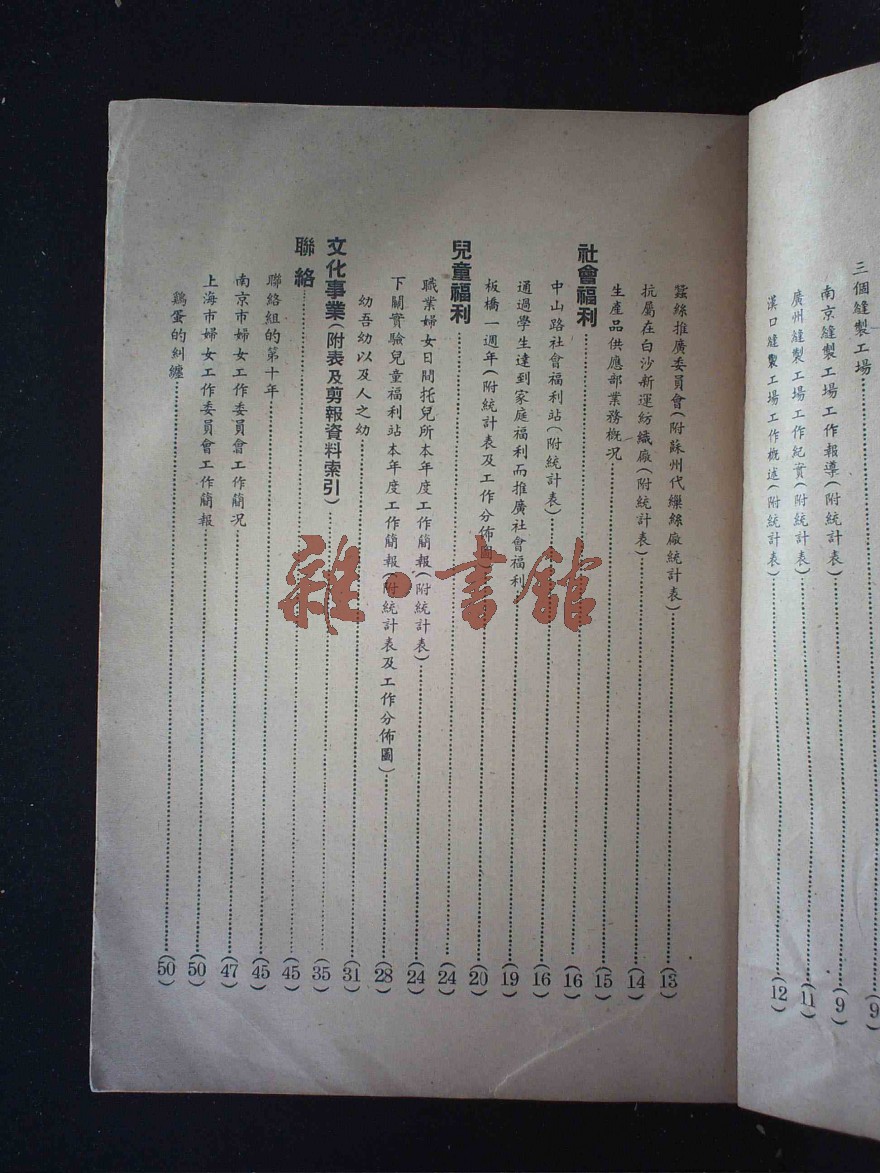 三個縫製工場(9)
南京縫製工場工作報導(附統計表)(9)
廣州縫製工場工作紀實(附統計表)(11)
漢口縫製工場工作概述(附統計表)(12)
蠶絲推廣委員會(附蘇州代繅絲廠統計表)(13)
抗屬在白沙新運紡織廠(附統計表)(14)
生產品供應部業務概况(15)
社會福利(16)
中山路社會福利站(附統計表)(16)
通過學生達到家庭福利而推廣社會福利(19)
板橋一週年(附統計表及工作分佈圖)(20)
兒童福利(24)
職業婦女日間托兒所本年度工作簡報(附統計表)(24)
下關實驗兒童福利站本年度工作簡報(附統計表及工作分佈圖)(28)
幼吾幼以及人之幼(31)
文化事業(附表及剪報資料索引)(35)
聯絡(45)
聯絡組的第十年(45)
南京市婦女工作委員會工作簡况(47)
上海市婦女工作委員會工作簡報(50)
鷄蛋的糾纏(50)
雜·書館